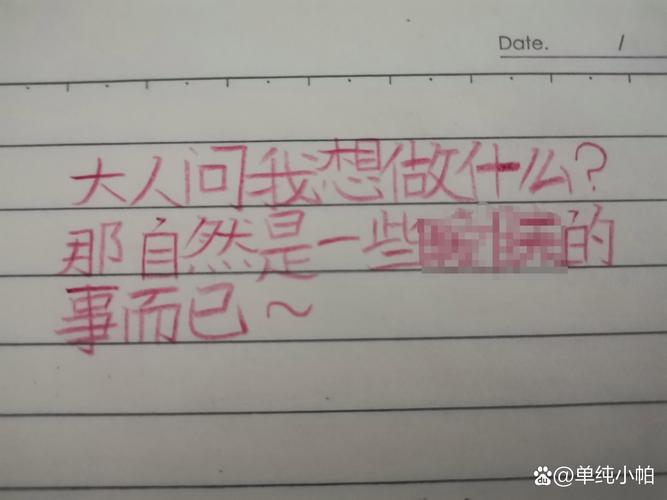 Date. /
大人问我想做什么?
那自然是一些的
事而已~
du @单纯小帕